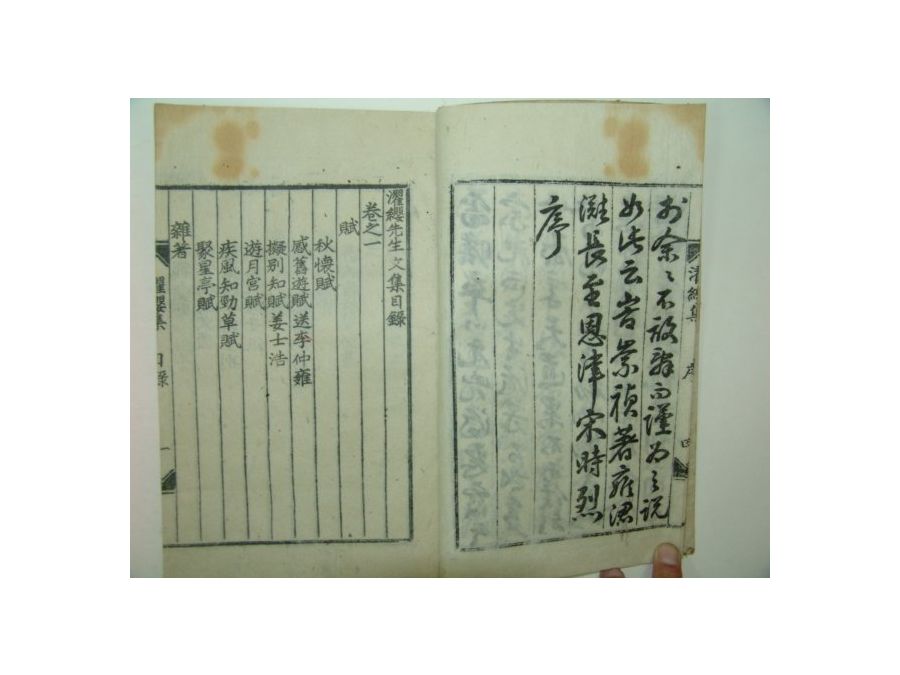 於余余不敢辭而謹為之說
如此云崇禎著雍涒
灘長至恩津宋時烈
序
濯纓集
序
四
濯纓先生文集目錄
卷之一
賦
秋懷賦
感舊遊賦送李仲雍
擬別知賦姜士浩
遊月宮賦
疾風知勁草賦
聚星亭賦
雜著
濯纓集
目錄
一